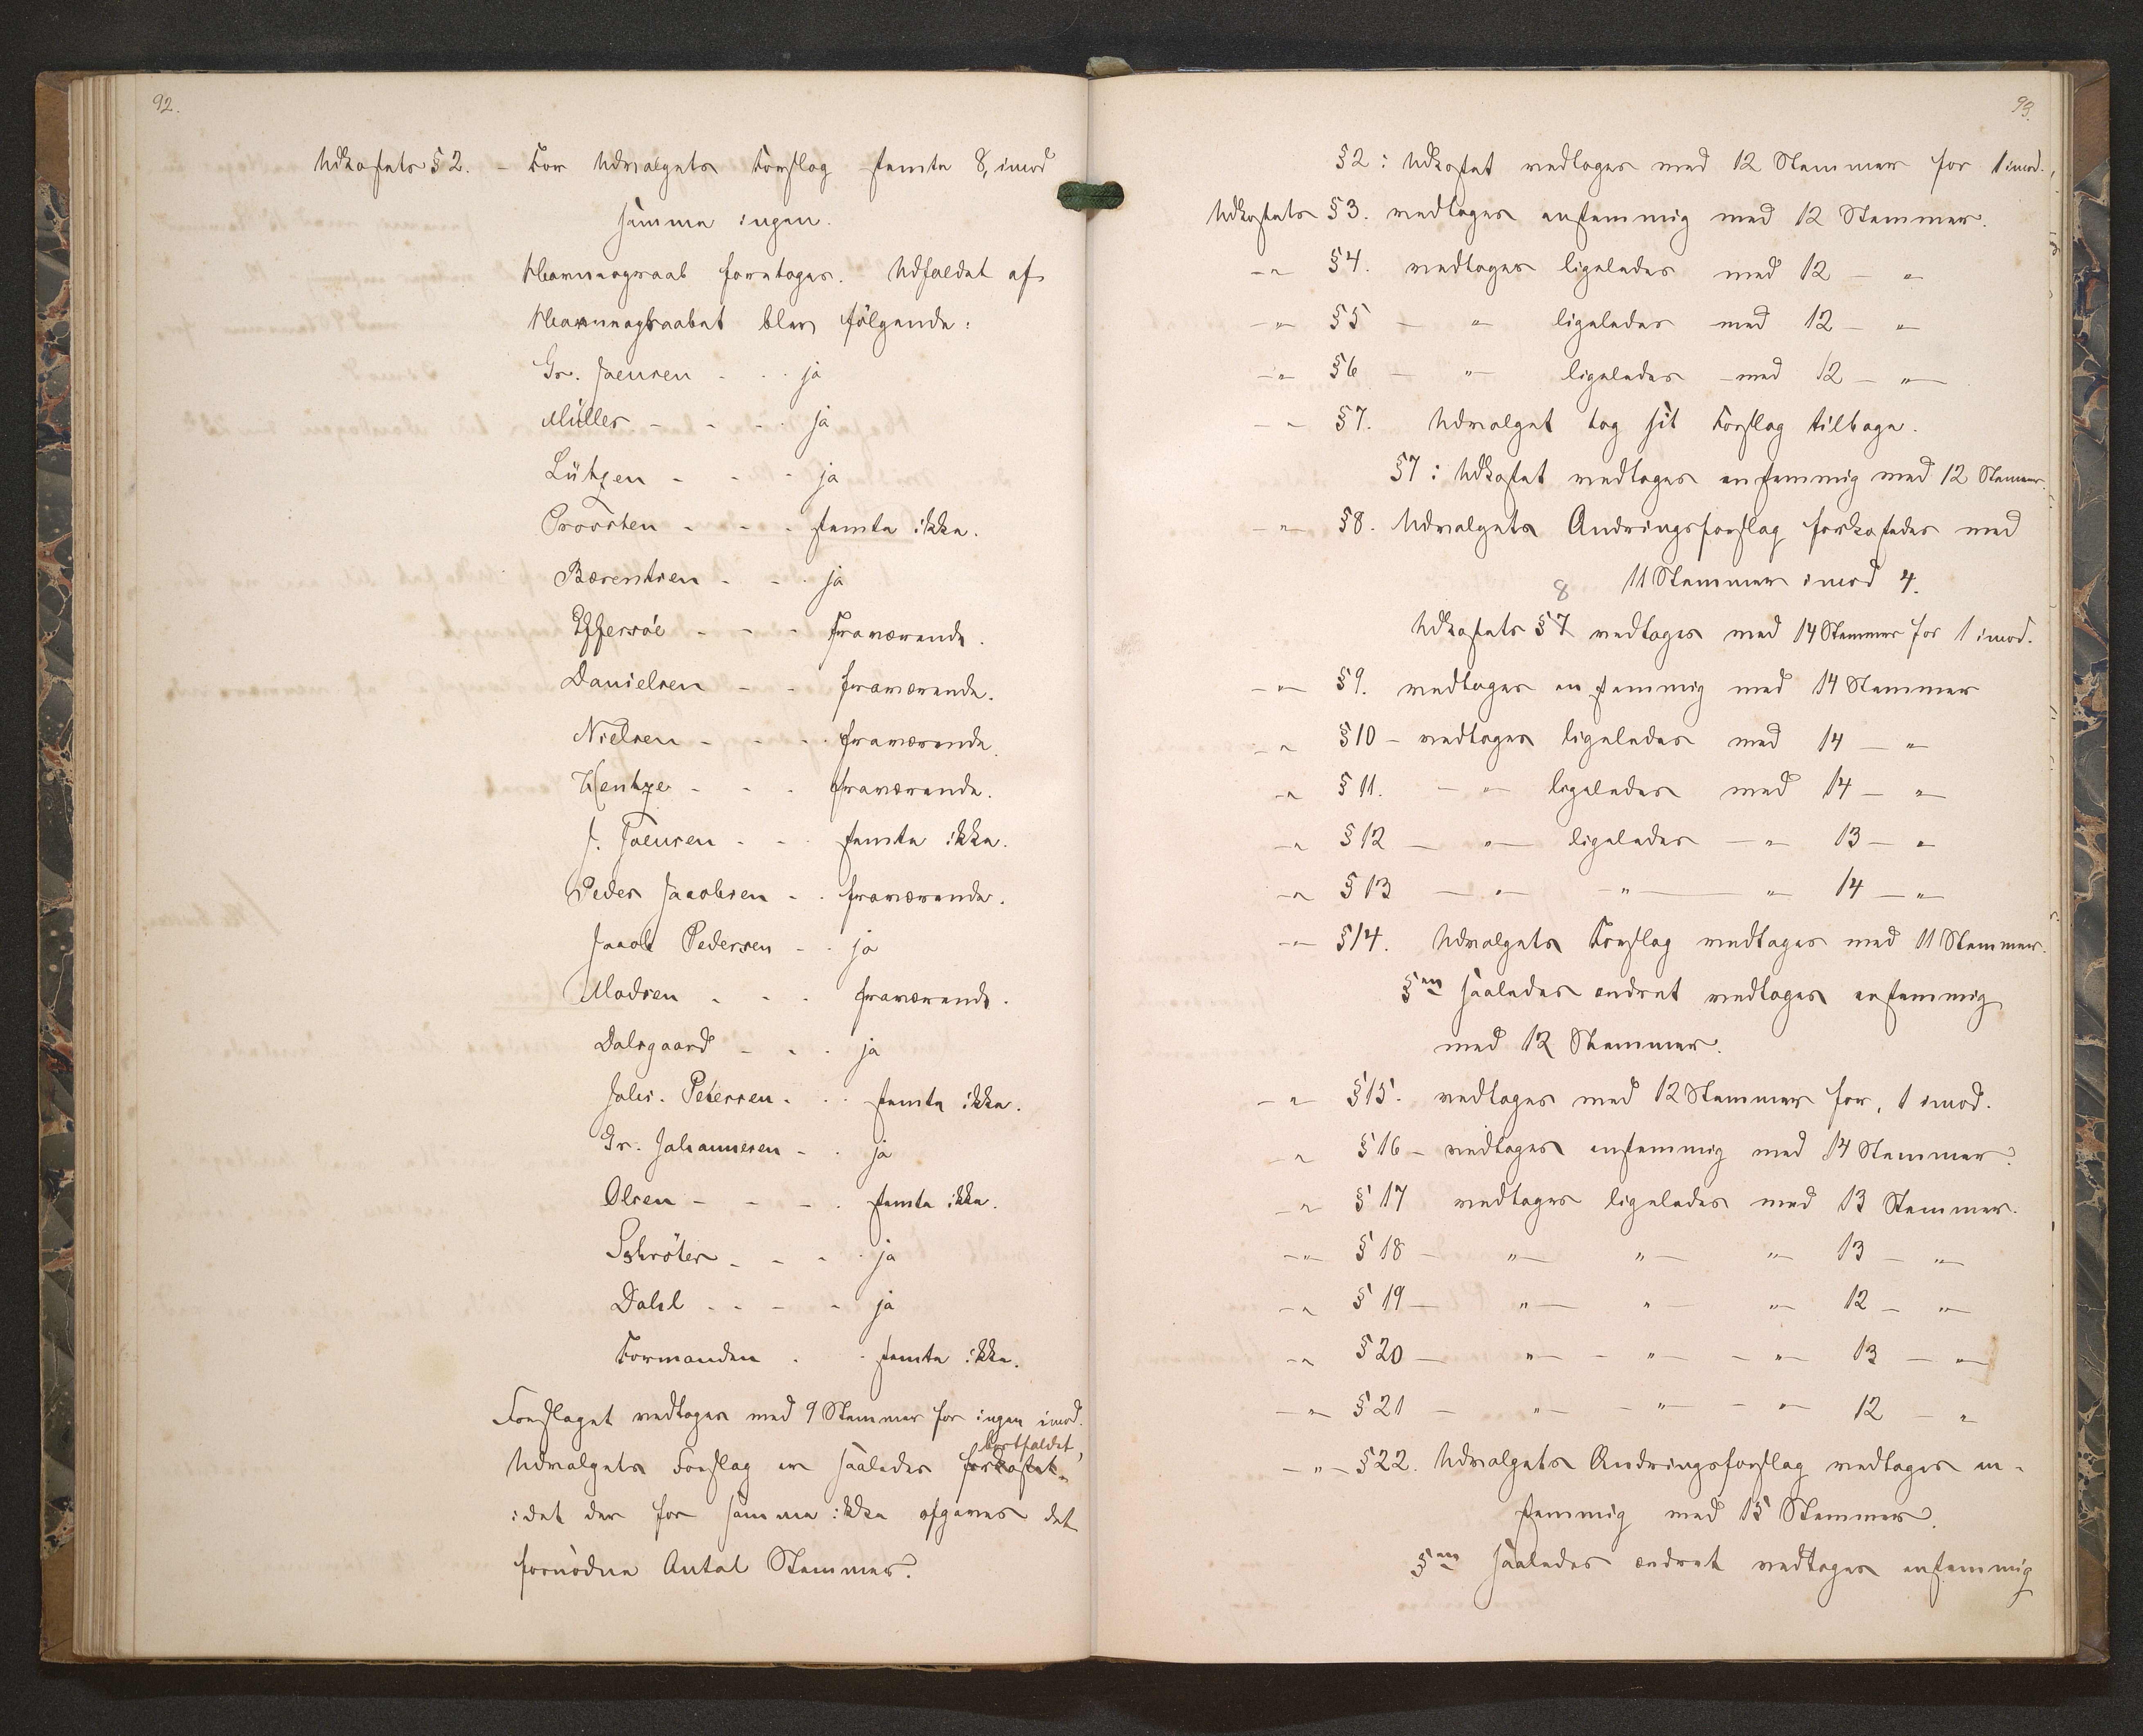 92.
Udkastets § 2. - For Udvalgets Forslag stemte 8, imod
samme ingen.
Navneopraab foretoges. Udfaldet af
Navneopraabet blev følgende:
Gr. Joensen - - - ja
Müller - - - - ja
Lützen - - - ja
Provsten - - - stemte ikke.
Bærentsen - - - ja
Effersøe - - - fraværende.
Danielsen - - fraværende.
Nielsen - - - fraværende.
Hentze - - - fraværende.
J. Joensen - - - stemte ikke.
Peder Jacobsen - - fraværende.
Jacob Pedersen - - ja
Madsen - - - fraværende.
Dalsgaard - - - ja
Johs. Petersen - - - stemte ikke.
Gr. Johannesen - - ja
Olsen - - - - stemte ikke.
Schröter - - - - ja
Dahl - - - - ja
Formanden - - stemte ikke.
Forslaget vedtoges med 9 Stemmer for ingen imod.
bortfaldet,
Udvalgets Forslag er saaledes forkastet
idet der for samme ikke afgaves det
fornødne Antal Stemmer.
93.
§ 2: Udkastet vedtoges med 12 Stemmer for 1 imod.
Udkastets § 3. vedtoges enstemmig med 12 Stemmer.
-"- § 4. vedtoges ligeledes med 12 - "
-"- § 5 - " - ligeledes med 12 - " -
-"- § 6 - " - ligeledes med 12 - " -
-"- § 7. Udvalget tog sit Forslag tilbage.
§ 7: Udkastet vedtoges enstemmig med 12 Stemmer.
-"- § 8. Udvalgets Ændringsforslag forkastedes med
11 Stemmer imod 4.
8
Udkastets § 7 vedtoges med 14 Stemmer for 1 imod.
-"- § 9. vedtoges enstemmig med 14 Stemmer
-"- § 10 - vedtoges ligeledes med 14 - " -
-"- § 11. - " - ligeledes med 14 - " -
-"- § 12 - " - ligeledes - " - 13 - " -
-"- § 13 - " - - " - " - 14 - " -
-"- § 14. Udvalgets Forslag vedtoges med 11 Stemmer.
§en saaledes ændret vedtoges enstemmig
med 12 Stemmer.
-"- § 15. vedtoges med 12 Stemmer for, 1 imod.
-"- § 16 - vedtoges enstemmig med 14 Stemmer.
-"- § 17 vedtoges ligeledes med 13 Stemmer.
-"- § 18 - " - " - " - 13 - " -
-"- § 19 - " - " - " - 12 - " -
-"- § 20 - " - - " - - " - 13 - " -
-"- § 21 - " - - " - - " - 12 - "
-"- § 22. Udvalgets Ændringsforslag vedtoges en-
stemmig med 15 Stemmer.
§en saaledes ændret vedtoges enstemmig